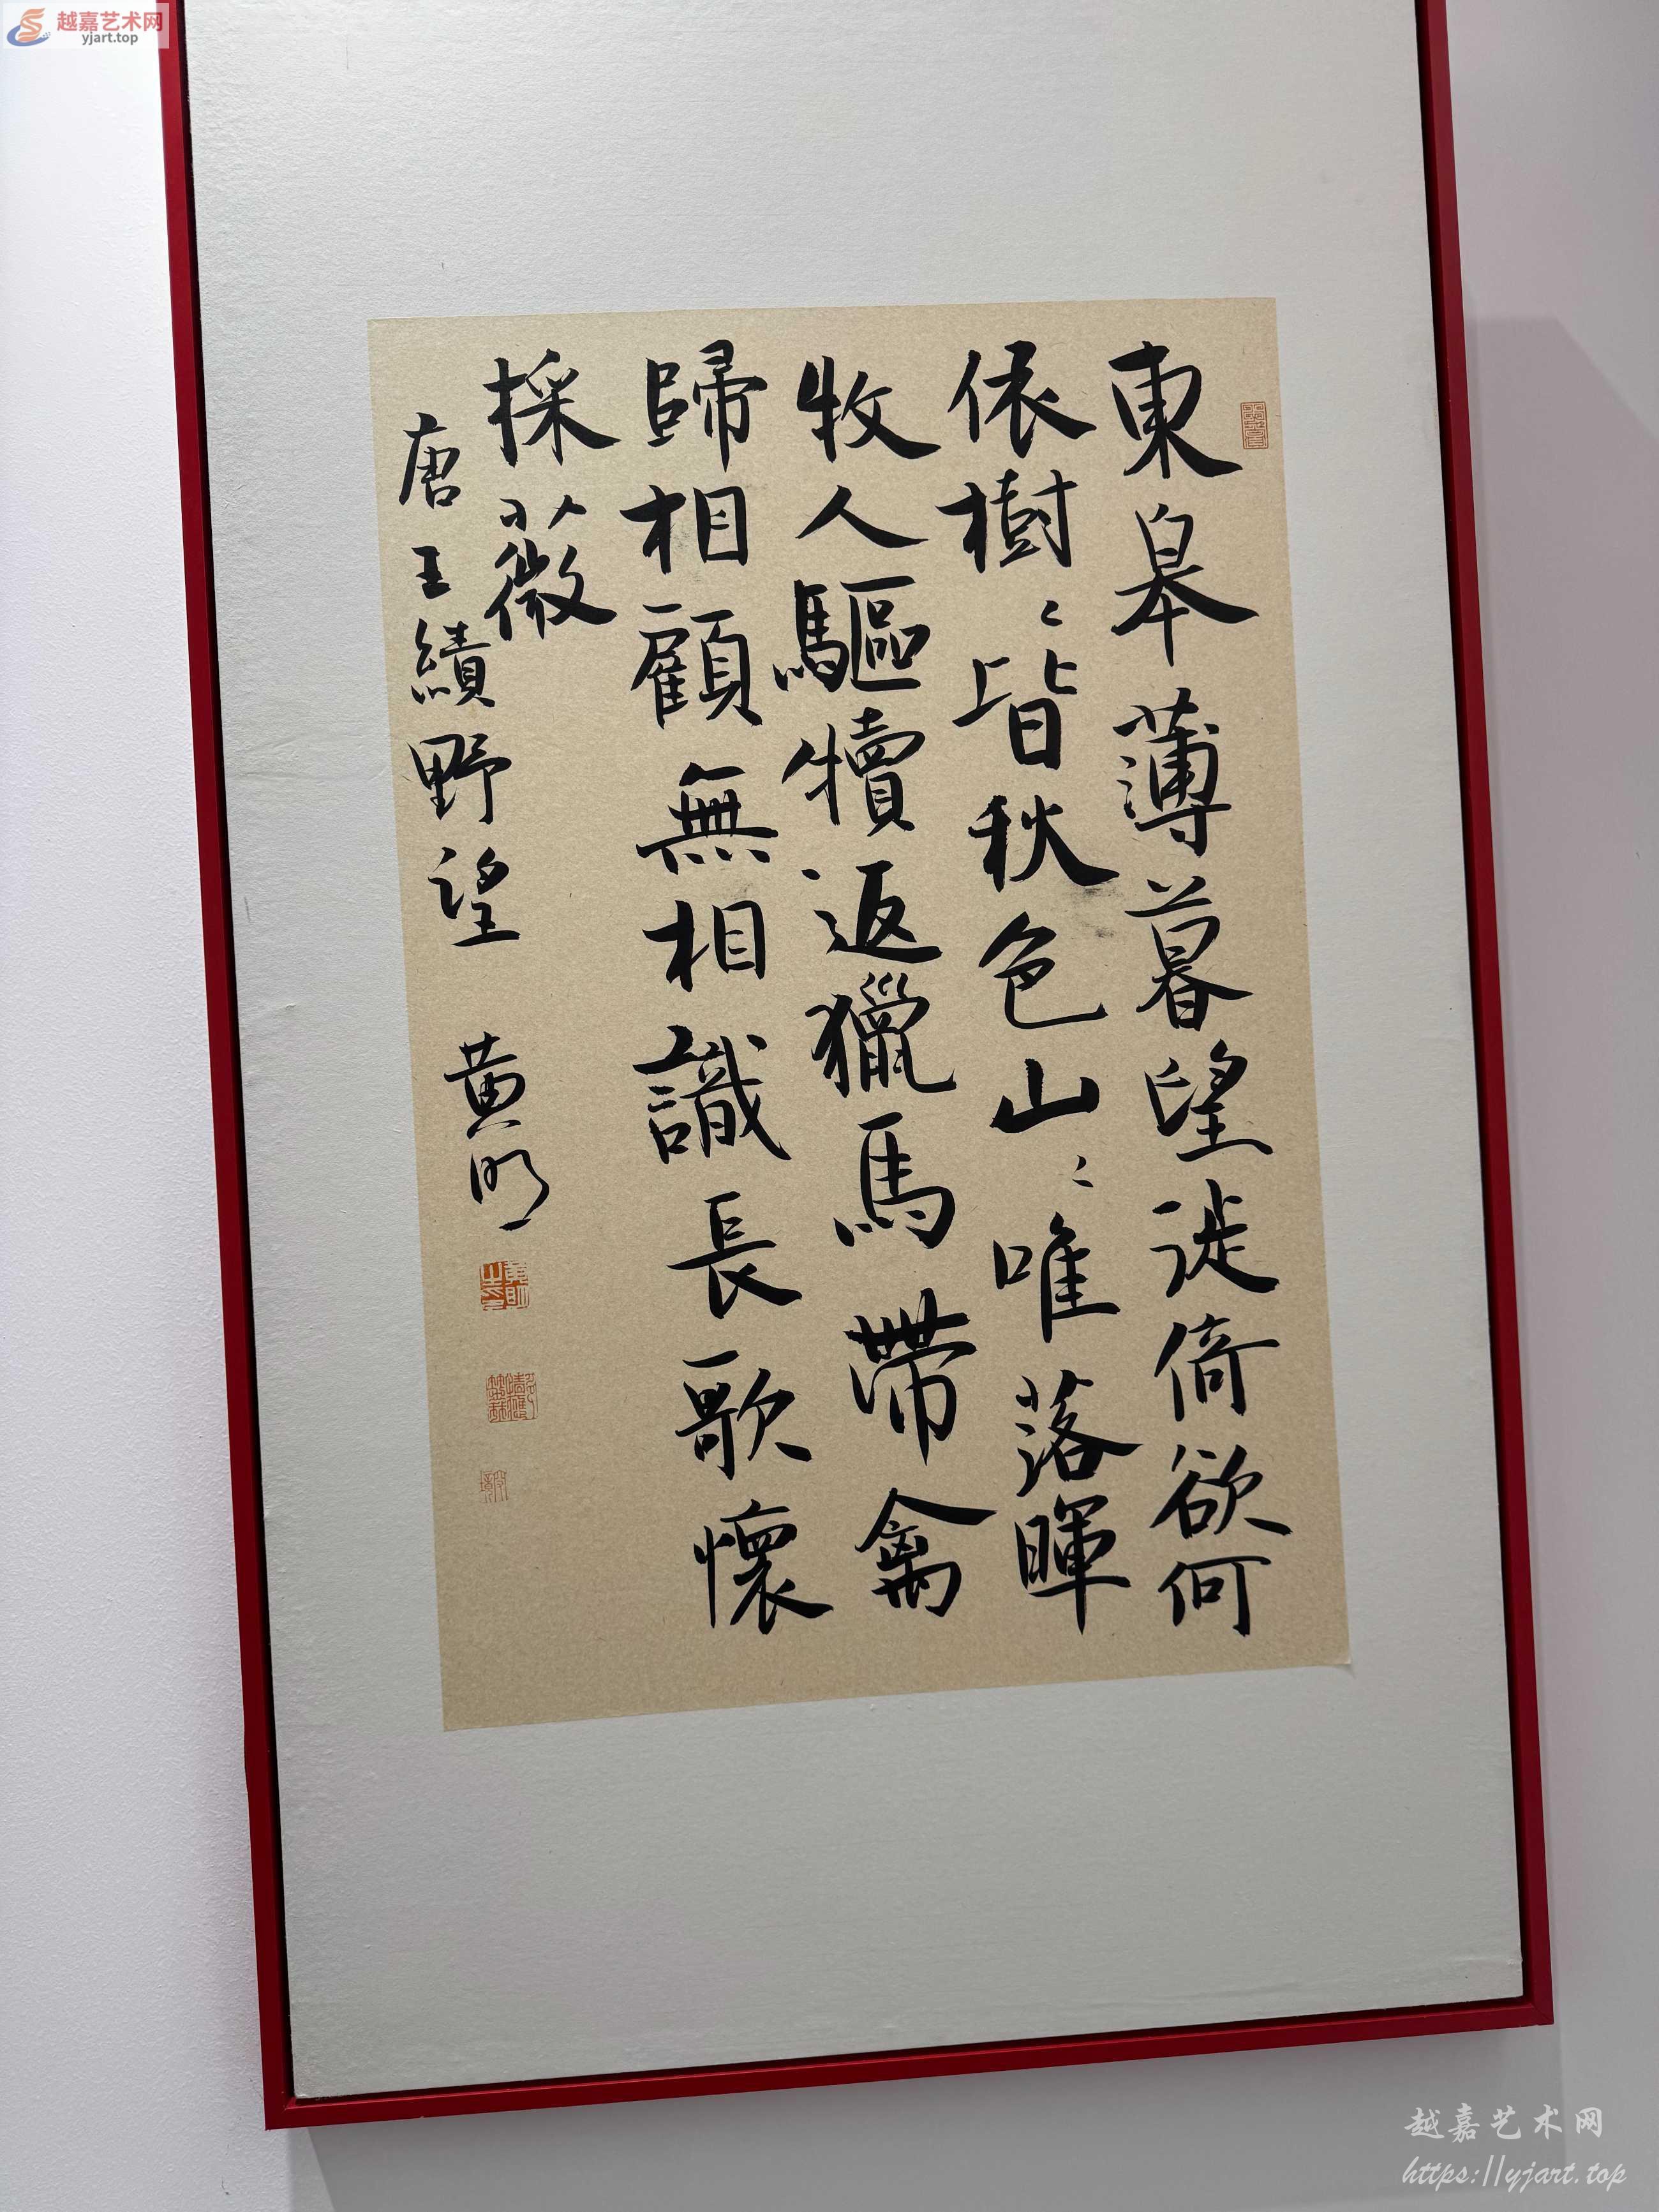 越嘉艺术网
yjart.top
東皋薄暮望徙倚欲何
依樹〻皆秋色山〻唯落暉
牧人驅犢返獵馬帶禽
歸相顧無相識長歌懷
採薇
唐王績野望 黄明
越嘉艺术网
https://yjart.top